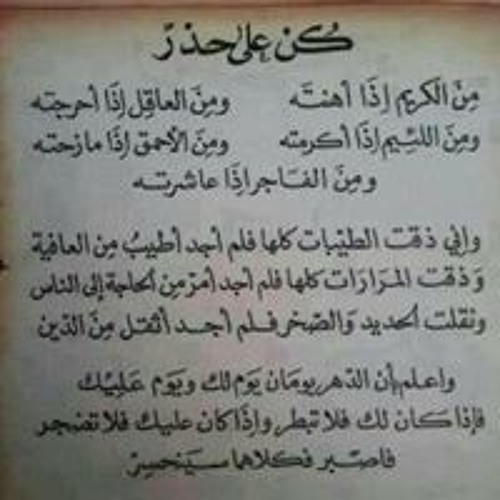 كُن على حذر
مِنَ الكريم إذَا أهنتَه ومِنَ العاقِل إذَا أحرجتَه
ومِنَ اللئيم إذَا أكرمته ومِنَ الأحمق إذَا مازحتَه
ومِنَ الفاجر إذَا عاشرتَه
وإني ذقت الطيّبات كلها فلم أجد أطيبُ مِن العافية
وَذقت المرَارَات كلها فلم أجد أمرّ مِن الحاجة إلى الناس
ونقلت الحديد وَالصّخر فلم أجد أثقل مِنَ الدّين
واعلم بأن الدّهر يومَان يَوم لك ويَوم عَليْك
فإذا كان لك فلا تبطر وإذا كان عليك فلا تضجر
فاصْبر فكلاهما سَينحسِرْ